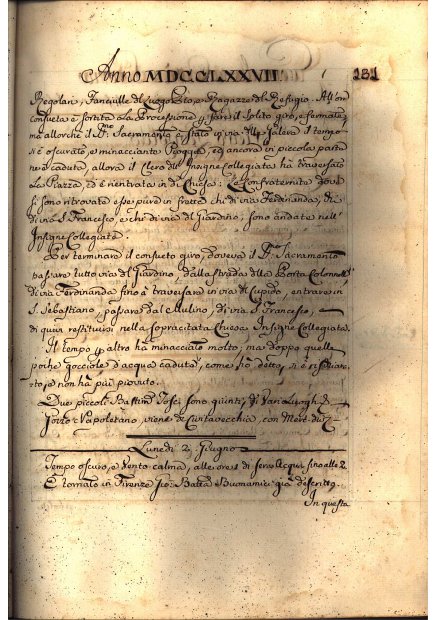 Anno MDCCLXXVII. 181
Regolari, Fanciulle del Luogo Pio, e Ragazze del Refugio. All'ora
consueta è sortita la Processione p fare il solito giro, e
ma allorchè il SS.mo Sacramento è stato in via della Galera il tempo
si è oscurato, e minacciante Pioggia, ed ancora in piccola parte
ne è caduta, allora il Clero dell'Insigne Collegiata ha traversato
la Piazza, ed è rientrata in di Chiesa: Le Confraternite dove
si sono ritrovate esse pure in fretta chi di via Ferdinanda, chi
di via S. Francesco, e chi di via del Giardino, sono andate nell'
Insigne Collegiata.
Per terminare il consueto giro, doveva il SS.mo Sacramento
passare tutto via del Giardino, dalla strada della Porta Colonnella,
di via Ferdinanda fino a traversare in via di Cupido, entrare in
S. Sebastiano, passare dal Mulino, di via S. Francesco,
di quivi restituirsi nella sopracitata Chiesa Insigne Collegiata.
Il tempo p altro ha minacciato molto, ma doppo quelle
poche gocciole d'acqua caduta, come sò detto, si è
to, e non ha più piovuto.
Due piccoli Bastim.ti sono giunti,
Pozzo Napoletano, viene di Civitavecchia, con
Lunedì 2, Giugno
Tempo oscuro, e Vento calma, alle ore 11 di sera Acqua fino alle 2.
È tornato in Firenze Gio: Batta Buonamici già descritto.
In questa